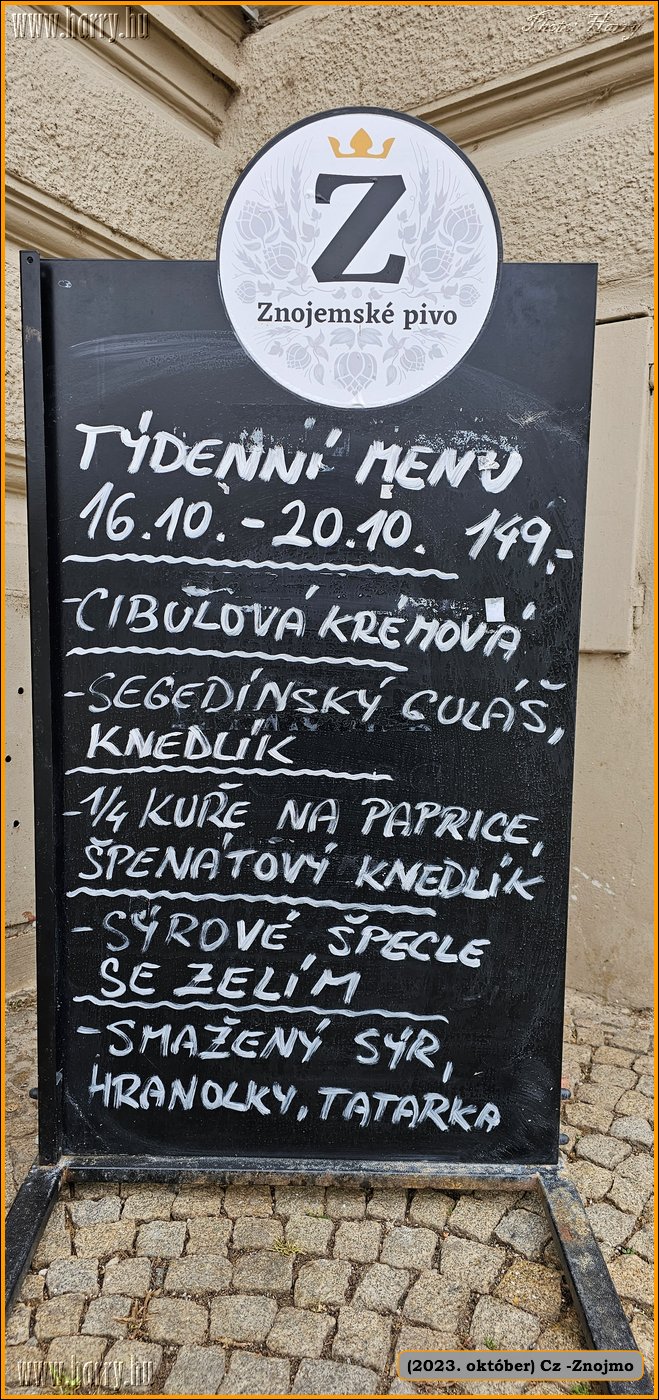 www.horry.hu
Photo: Horry
Z
Znojemské pivo
TÝDENNÍ MENU
16.10. - 20.10. 149,-
- CIBULOVÁ KRÉMOVÁ
- SEGEDÍNSKÝ GULÁŠ,
KNEDLÍK
- 1/4 KUŘE NA PAPRICE,
ŠPENÁTOVÝ KNEDLÍK
- SÝROVÉ ŠPECLE
SE ZELÍM
- SMAŽENÝ SÝR,
HRANOLKY, TATARKA
(2023. október) Cz -Znojmo
www.horry.hu